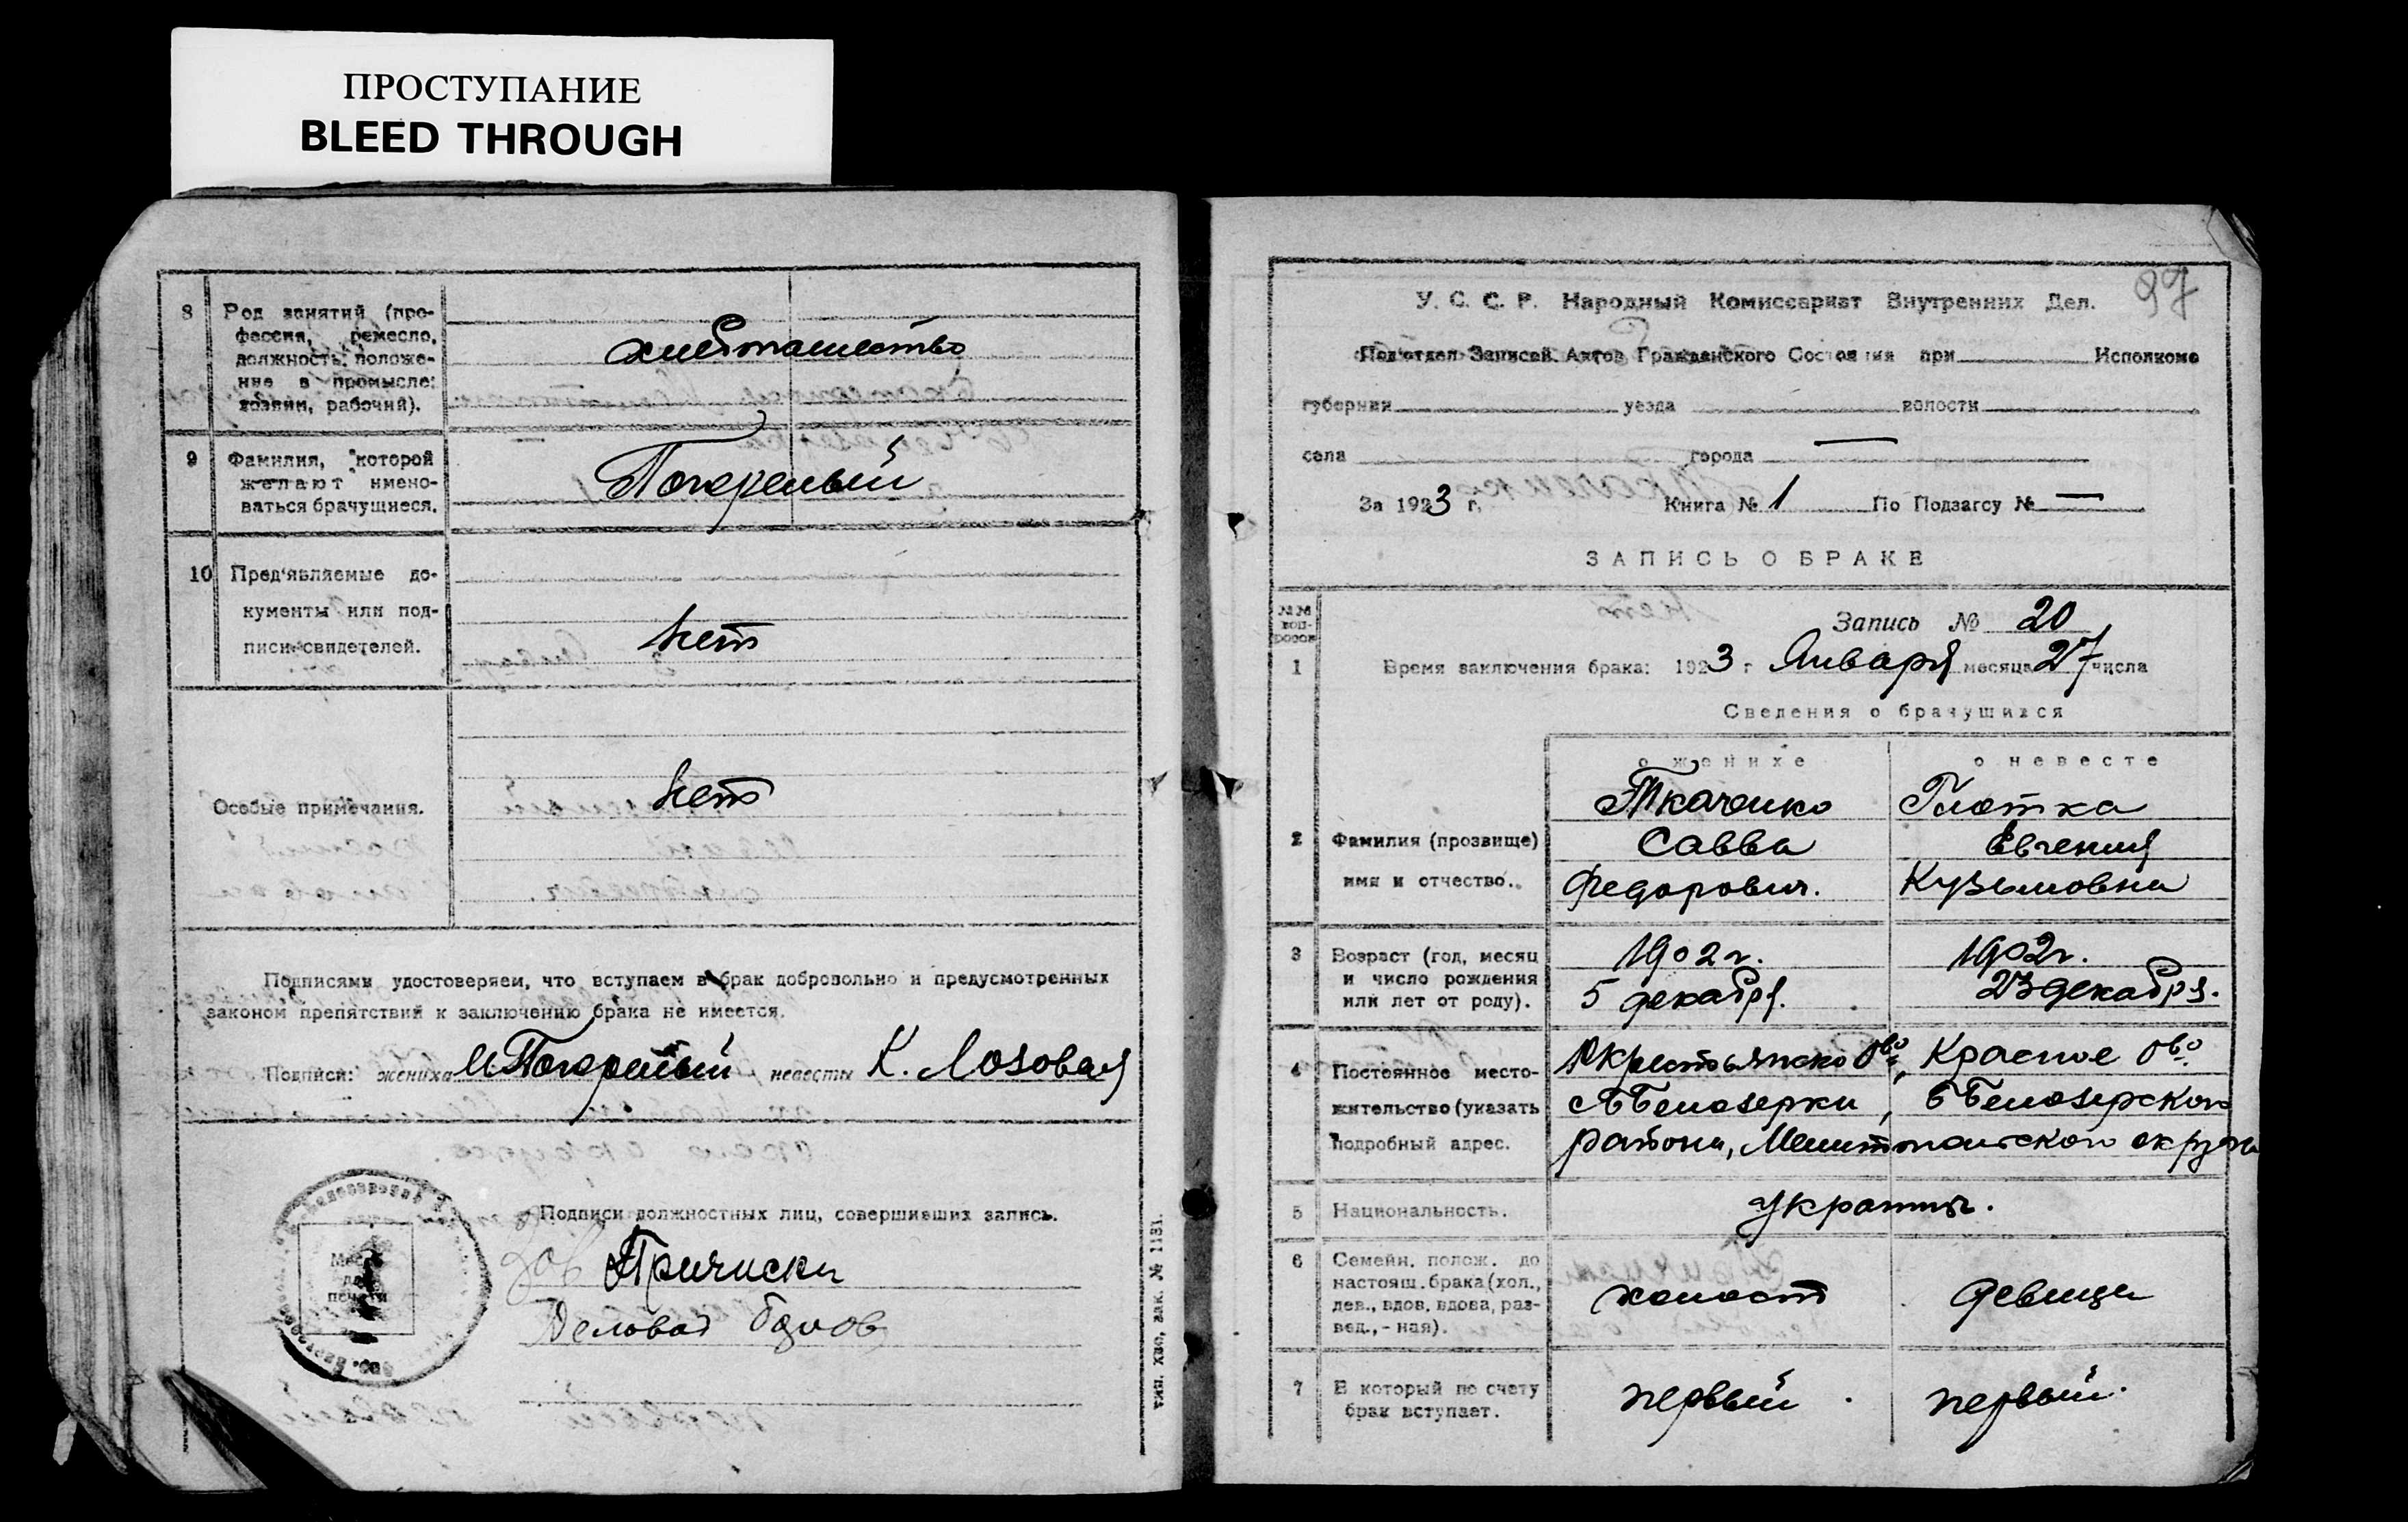 ПРОСТУПАНИЕ
BLEED THROUGH
8
Род занятий (про-
фессия, ремесло,
должность, положе-
ние в промысле:
хозяин, рабочий).
хлебопашество
9
Фамилия, которой
желают имено-
ваться брачущиеся.
Погорелый
10
Пред'являемые до-
кументы или под-
писи свидетелей.
нет
Особые примечания.
нет
Подписями удостоверяем, что вступаем в брак добровольно и предусмотренных
законом препятствий к заключению брака не имеется.
Подписи: жениха И Погорелый невесты К. Лозовая
Место
для
печати
Подписи должностных лиц, совершивших запись.
Зав
Деловод
тип. хво, зак. № 1131.
97
У. С. С. Р. Народный Комиссариат Внутренних Дел.
Под'отдел Записей Актов Гражданского Состояния при Исполкоме
губернии уезда волости
села города —
За 1923 г. Книга № 1 По Подзагсу № —
ЗАПИСЬ О БРАКЕ
№№
воп-
росов
Запись № 20
1 Время заключения брака: 1923 г Января месяца 27 числа
Сведения о брачущихся
о женихе о невесте
2 Фамилия (прозвище)
имя и отчество.
Ткаченко
Савва
Федорович.
Глотка
Евгения
Кузьмовна
3 Возраст (год, месяц
и число рождения
или лет от роду).
1902 г.
5 декабря.
1902 г.
23 декабря.
4 Постоянное место-
жительство (указать
подробный адрес.
Крестьянско О-во, Красное О-во
с Б Белозерки, Б Белозерского
района, Мелитопольского округа
5 Национальность.
украинц.
6 Семейн. полож. до
настоящ. брака (хол.,
дев., вдов, вдова, раз-
вед., - ная).
холост девица
7 В который по счету
брак вступает.
первый. первый.